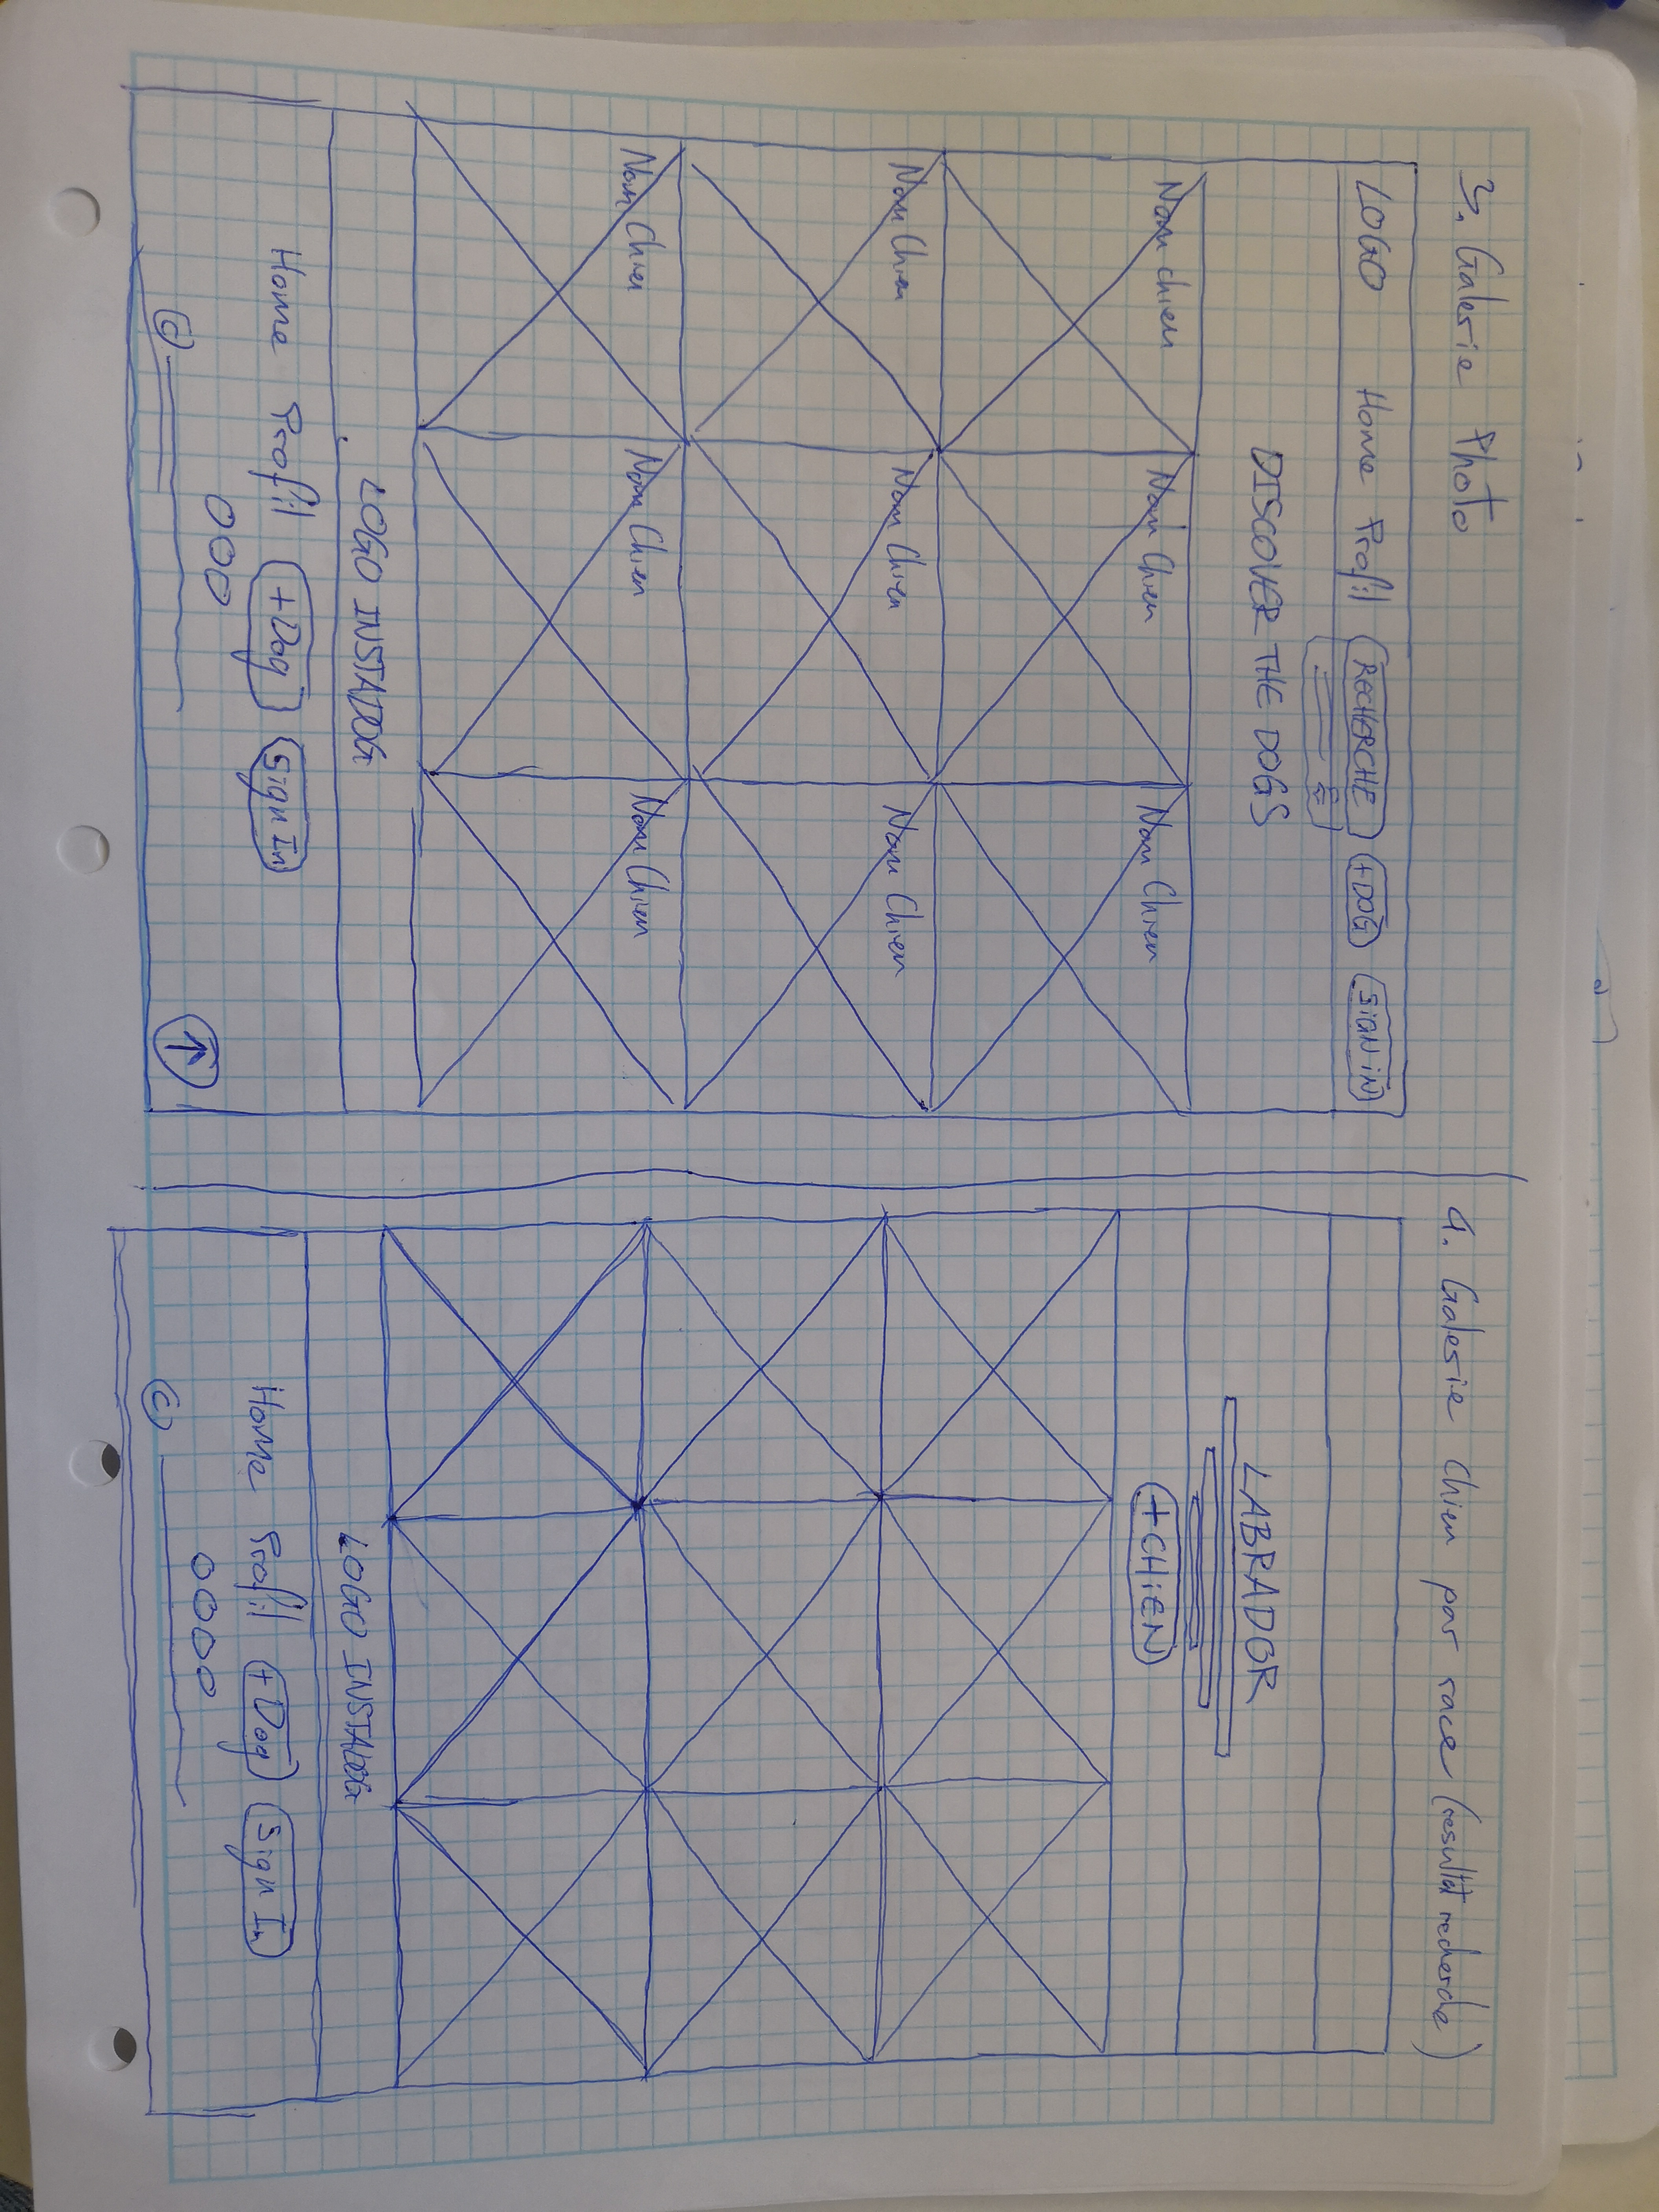 3. Galerie Photo
LOGO Home Profil RECHERCHE +DOG SIGN IN
DISCOVER THE DOGS
Nom chien Nom Chien Nom Chien
Nom Chien Nom Chien Nom Chien
Nom Chien Nom Chien Nom Chien
LOGO INSTADOG
Home Profil +Dog Sign In
©
4. Galerie Chien par race (resultat recherche)
LABRADOR
+CHIEN
LOGO INSTADOG
Home Profil +Dog Sign In
©